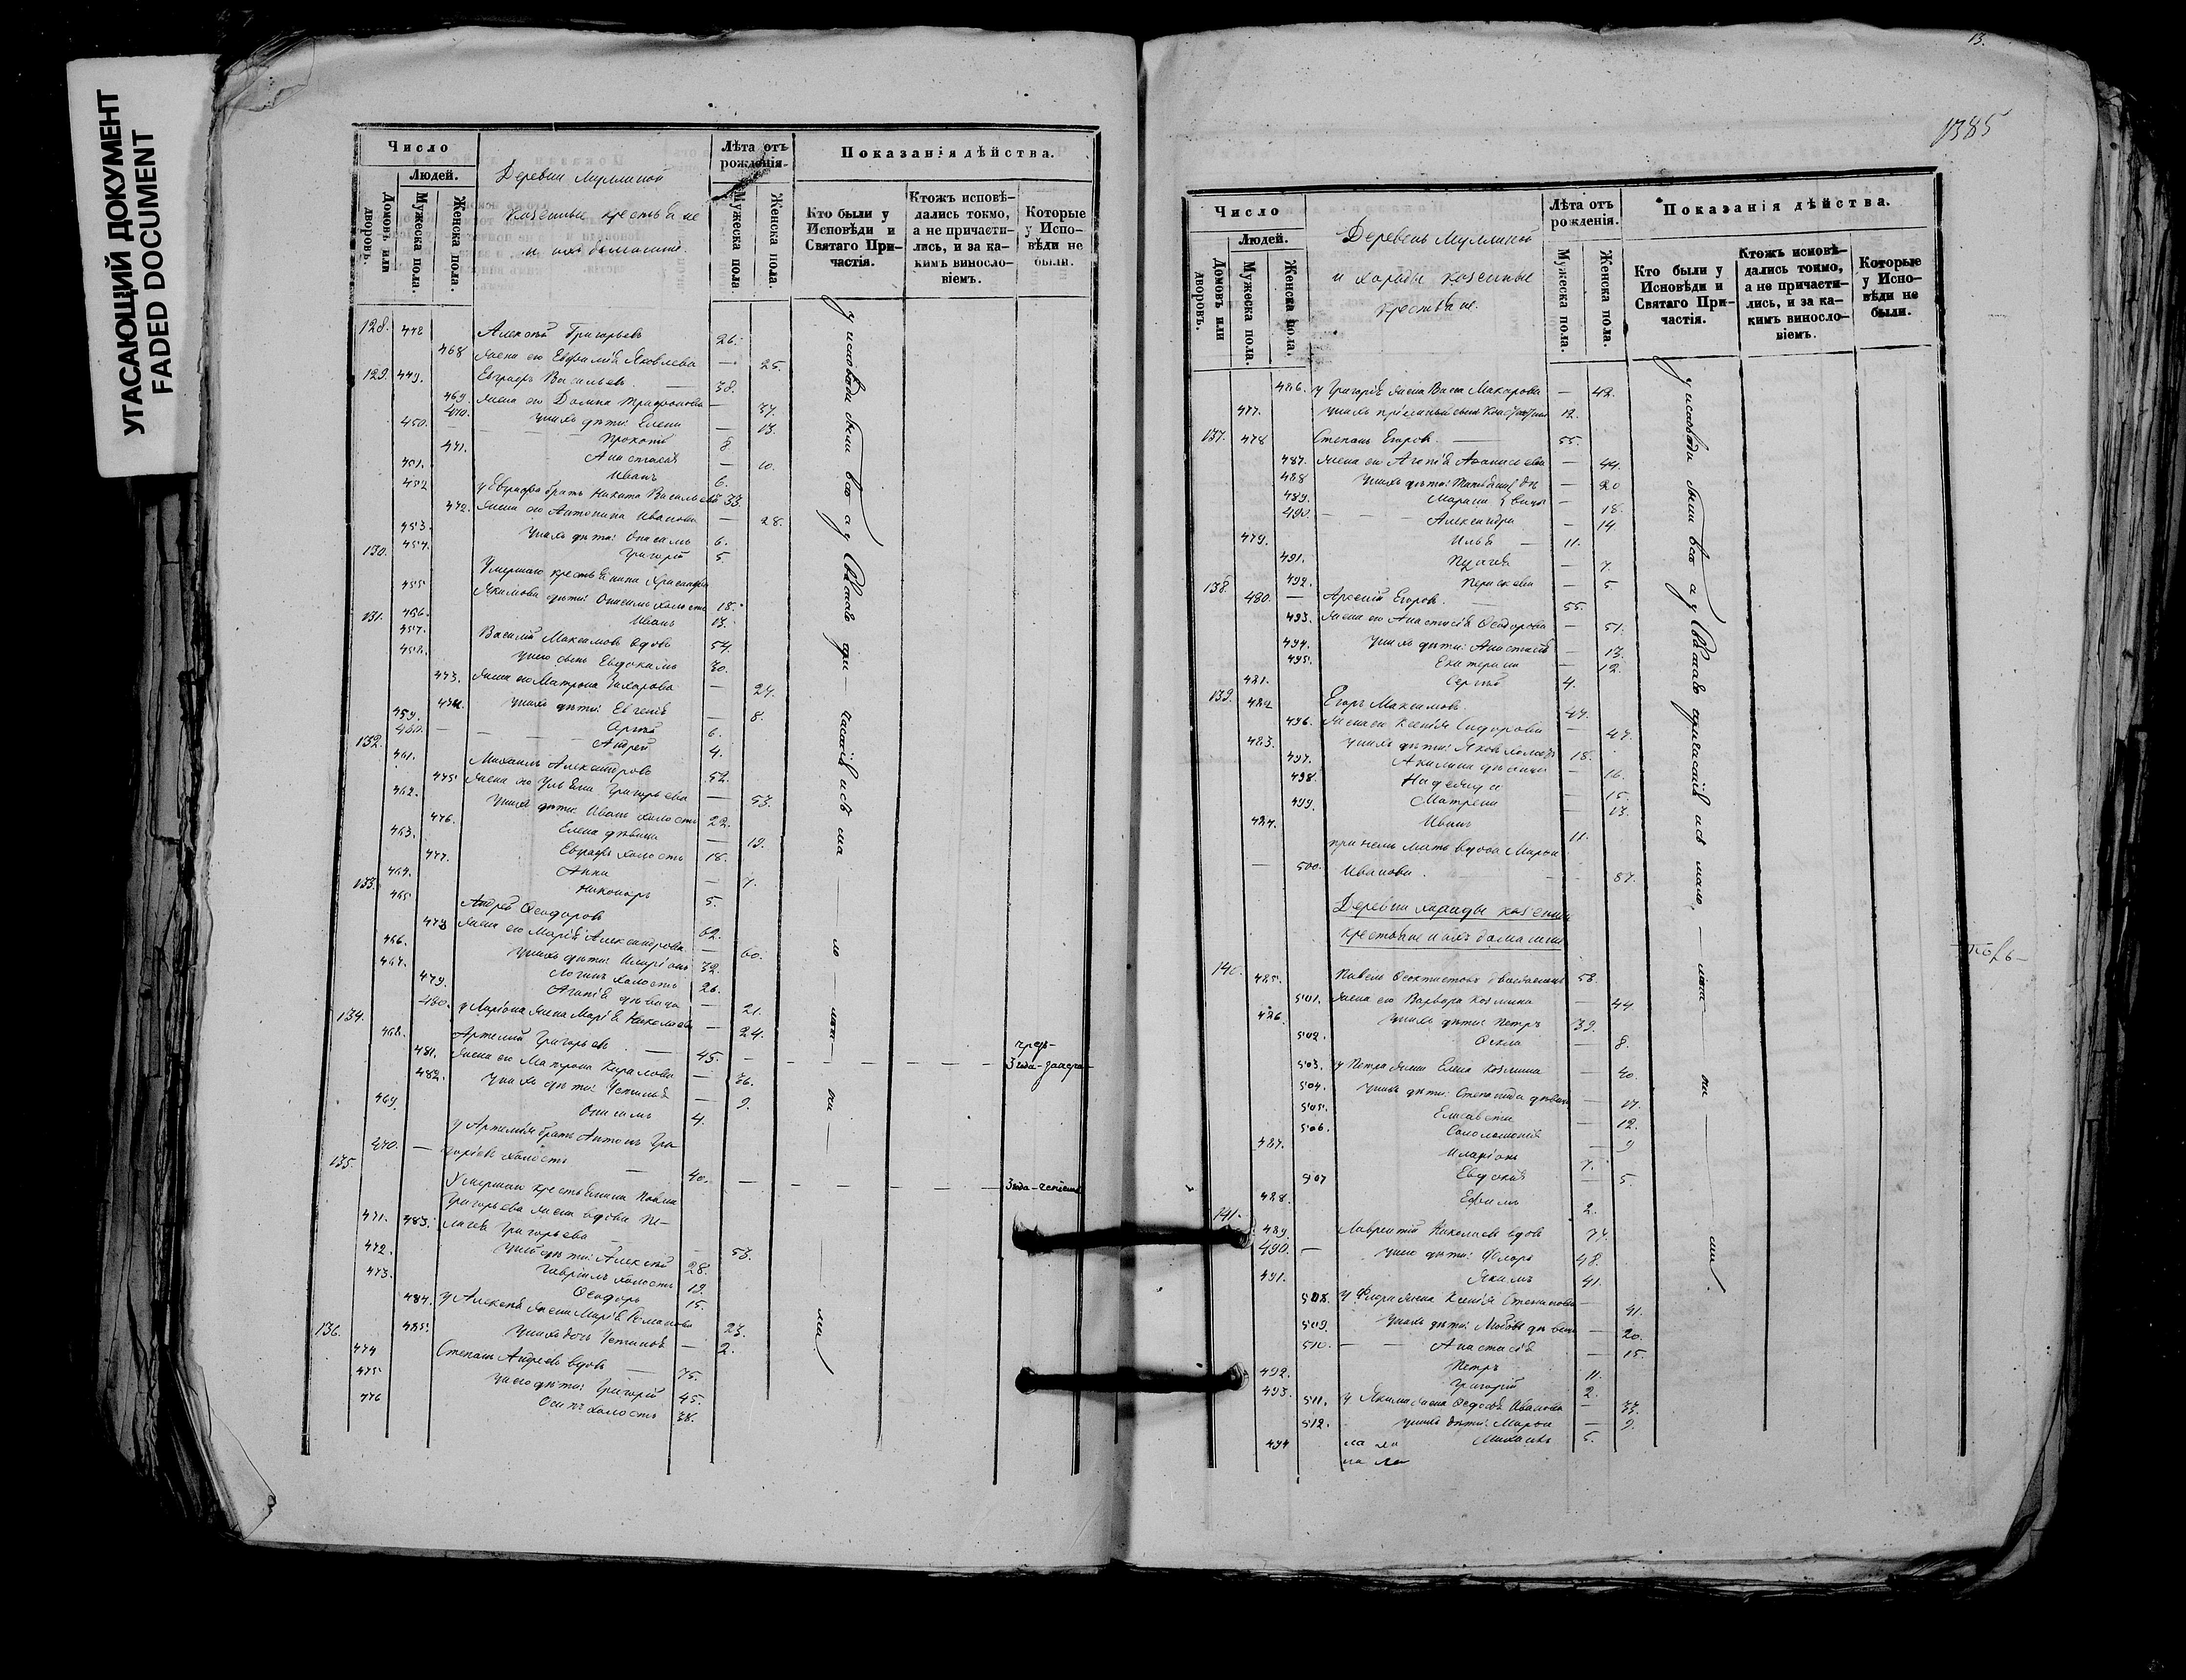 УГАСАЮЩИЙ ДОКУМЕНТ
FADED DOCUMENT
Число
Людей.
Домовъ или дворовъ.
Мужеска пола.
Женска пола.
Деревни Муллиной
казенные крестьяне
и ихъ домашніе.
Лѣта отъ рожденія.
Мужеска пола.
Женска пола.
Показанія дѣйства.
Кто были у Исповѣди и Святаго Причастія.
Ктожъ исповѣдались токмо, а не причастились, и за какимъ винословіемъ.
Которые у Исповѣди не были.
128. 448 Алексѣй Григорьевъ 26.
468 жена его Евфимія Яковлева — 25.
129. 449. Евграфъ Васильевъ — 38.
469. жена его Домна Трифонова — 37.
470. у нихъ дѣти: Елена — 13.
450. Прокопій 8.
471. Анастасія — 10.
451. Иванъ 6.
452 у Евграфа братъ Никита Васильевъ 33.
472. жена его Антонина Иванова — 28.
453. у нихъ дѣти: Онисимъ 6.
454. Григорій 5.
130. Умершаго крестьянина Хрисанфа
455 Якимова дѣти: Онисимъ холостъ 18.
456. Иванъ 13.
131. 457. Василій Максимовъ вдовъ 54.
458. у него сынъ Евдокимъ 30.
473. жена его Матрона Захарова — 24.
474. у нихъ дѣти: Евгенія — 8.
459. Сергѣй 6.
460. Андрей 4.
132. 461. Михаилъ Александровъ 52.
475 жена его Ульяна Григорьева — 53.
462. у нихъ дѣти: Иванъ холостъ 22.
476. Елена дѣвица — 19.
463. Евграфъ холостъ 18.
477. Анна — 7.
464. Никоноръ 5.
133. 465 Андрей Ѳеодоровъ 62.
478 жена его Марія Александрова — 60.
466. у нихъ дѣти: Иларіонъ 32.
467. Логинъ холостъ 26.
479. Агапія дѣвица — 21.
480. у Ларіона жена Марія Николаева — 24.
134. 468. Артемій Григорьевъ — 45.
481. жена его Матрона Кирилова — 36.
482. у нихъ дѣти: Устинья — 9.
469. Онисимъ 4.
у Артемія братъ Антонъ Гри-
470. — горьевъ холостъ — 40.
135. Умершаго крестьянина Павла
Григорьева жена вдова Пе-
483. лагея Григорьева — 53.
471. у ней дѣти: Алексѣй 28.
472. Гавріилъ холостъ 19.
473. Ѳеодоръ 15.
484. у Алексѣя жена Марія Романова 23.
485. у нихъ дочь Устинья — 2.
136. 474 Степанъ Андреевъ вдовъ — 75.
475 у него дѣти: Григорій 45.
476 Осипъ холостъ 38.
у исповѣди были всѣ а у Святаго причастія не
13.
1385
Число
Людей.
Домовъ или дворовъ.
Мужеска пола.
Женска пола.
Деревень Муллиной
и Харады казенные
крестьяне.
Лѣта отъ рожденія.
Мужеска пола.
Женска пола.
Показанія дѣйства.
Кто были у Исповѣди и Святаго Причастія.
Ктожъ исповѣдались токмо, а не причастились, и за какимъ винословіемъ.
Которые у Исповѣди не были.
486. у Григорія жена Васса Макарова — 42.
477. у нихъ пріемный сынъ 12.
137. 478 Степанъ Егоровъ — 55.
487. жена его Агапія Афанасьева — 44.
488 у нихъ дѣти: Татьяна дѣ — 20
489. Марана вицы — 18.
490. Александра — 14.
479. Илья — 11.
491. Пелагея — 7.
492. Параскева — 5.
138. 480. Арсеній Егоровъ — 55.
493. жена его Анастасія Ѳеодорова — 51.
494. у нихъ дѣти: Анастасія — 13.
495. Екатерина — 12.
481. Сергѣй 4.
139. 482 Егоръ Максимовъ 47.
496. жена его Ксенія Сидорова — 47.
483. у нихъ дѣти: Яковъ холостъ 18.
497. Акилина дѣвица — 16.
498. Надежда — 15.
499. Матрена — 13.
484. Иванъ 11.
при немъ мать вдова Марѳа
500. Иванова — 87.
Деревни Харады казенные
крестьяне и ихъ домашніе
140. 485. Павелъ Ѳеоктистовъ 58.
501. жена его Варвара Козмина — 44
486. у нихъ дѣти: Петръ 39.
502. Ѳекла — 8.
503. у Петра жена Елена Козмина — 40.
504. у нихъ дѣти: Степанида дѣвица — 17.
505. Елисавета — 12.
506. Соломонія — 9
487. Иларіонъ 7.
507 Евдокія — 5.
488. Ефимъ 2.
141. 489. Лаврентій Николаевъ вдовъ 74.
490. — у него дѣти: Флоръ 48.
491. Якимъ 41.
508. у Флора жена Ксенія Степанова — 41.
509. у нихъ дѣти: Любовь дѣвица — 20.
510. — — Анастасія — 15.
492. Петръ 11.
493. Григорій 2.
511. у Якима жена Ѳедосья Иванова — 33.
512. у нихъ дѣти: Марѳа — 9.
494 Михаилъ 5.
у исповѣди были всѣ а у Святаго причастія не